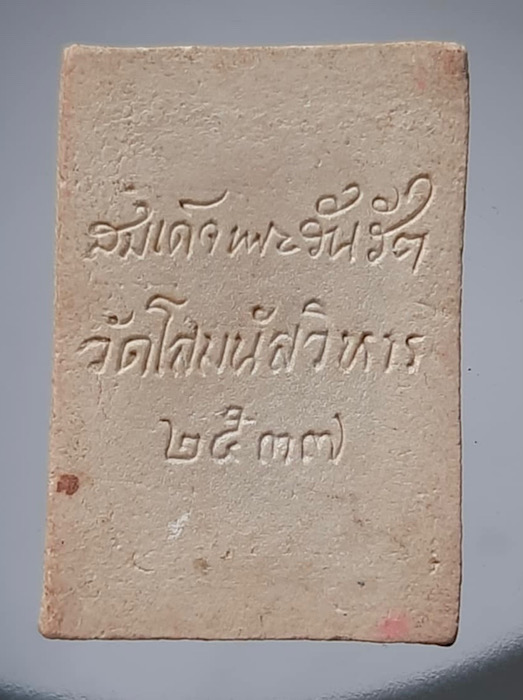 สมเด็จพระวันรัต
วัดโสมนัสวิหาร
๒๕๓๗